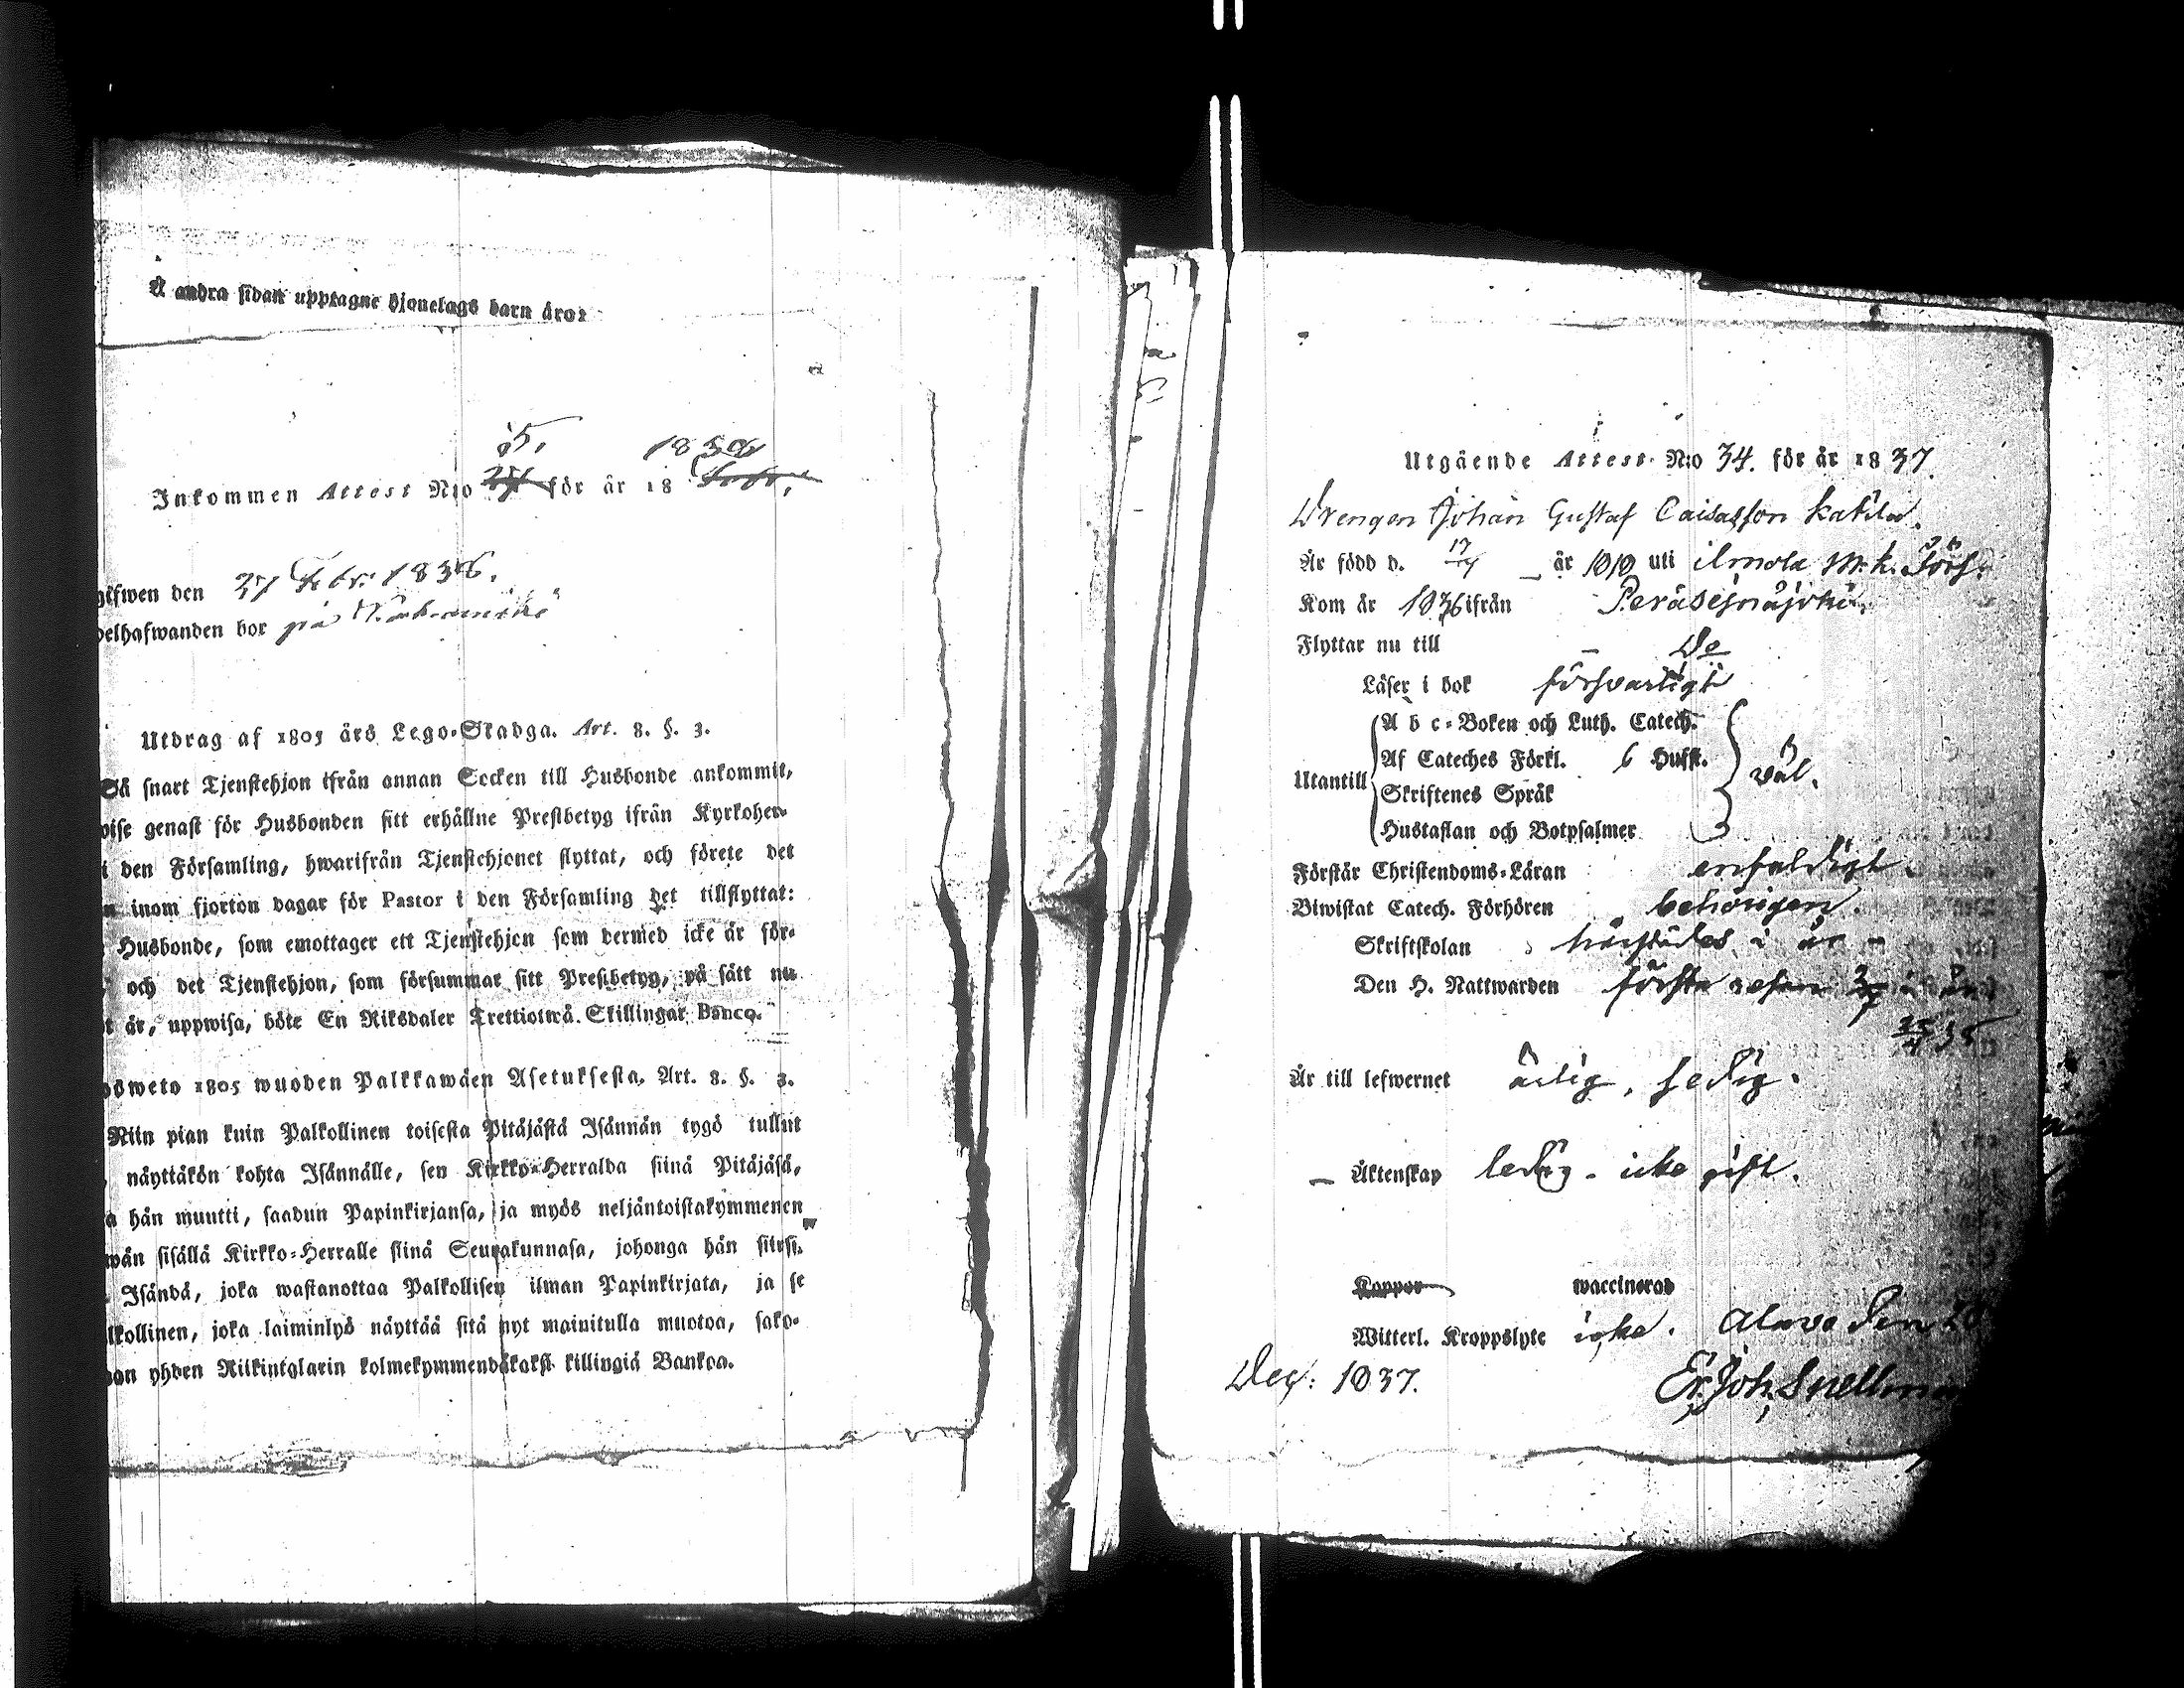 Å andra sidan upptagne hjonelags barn äro:
15. 1836
Inkommen Attest N:o för år 18
gifwen den 27 Febr: 1836.
delhafwanden bor på
Utdrag af 1805 års Lego-Stadga. Art. 8. §. 3.
Så snart Tjenstehjon ifrån annan Socken till Husbonde ankommit,
wise genast för Husbonden sitt erhållne Prestbetyg ifrån Kyrkoher-
i den Församling, hwarifrån Tjenstehjonet flyttat, och förete det
n inom fjorton dagar för Pastor i den Församling det tillflyttat:
Husbonde, som emottager ett Tjenstehjon som dermed icke är för-
och det Tjenstehjon, som försummar sitt Prestbetyg, på sätt nu
t är, uppwisa, böte En Riksdaler Trettiotwå Skillingar Banco.
osweto 1805 wuoden Palkkawäen Asetuksesta. Art. 8. §. 3.
Niin pian kuin Palkollinen toisesta Pitäjästä Isännän tygö tullut
näyttäkön kohta Isännälle, sen Kirkko-Herralda siinä Pitäjäsä,
a hän muutti, saadun Papinkirjansa, ja myös neljäntoistakymmenen
wän sisällä Kirkko-Herralle siinä Seurakunnasa, johonga hän siirsi.
Isändä, joka wastanottaa Palkollisen ilman Papinkirjata, ja se
lkollinen, joka laiminlyö näyttää sitä nyt mainitulla muotoa, sako-
an yhden Riikintalarin kolmekymmendäkaksi killingiä Bankoa.
Utgående Attest N:o 34. för år 1837.
Drengen Johan Gustaf Caisasson Katila.
Är född d. 17/4 år 1819 uti Ilmola M.k. Förs.
Kom år 1836 ifrån Peräseinäjoki,
Flyttar nu till – Do
Läser i bok försvarligt
Utantill
A b c-Boken och Luth. Catech.
Af Cateches Förkl. 6 Hufst.
Skriftenes Språk
Hustaflan och Botpsalmer
väl.
Förstår Christendoms-Läran enfaldigt.
Biwistat Catech. Förhören behörigen.
Skriftskolan härstädes i år
Den H. Nattwarden första
Är till lefwernet ärlig, sedig.
— Äktenskap ledig – icke gift.
Koppor waccinerad
Witterl. Kroppslyte icke. Alavo den
Dec: 1837.
Er. Joh. Snellman